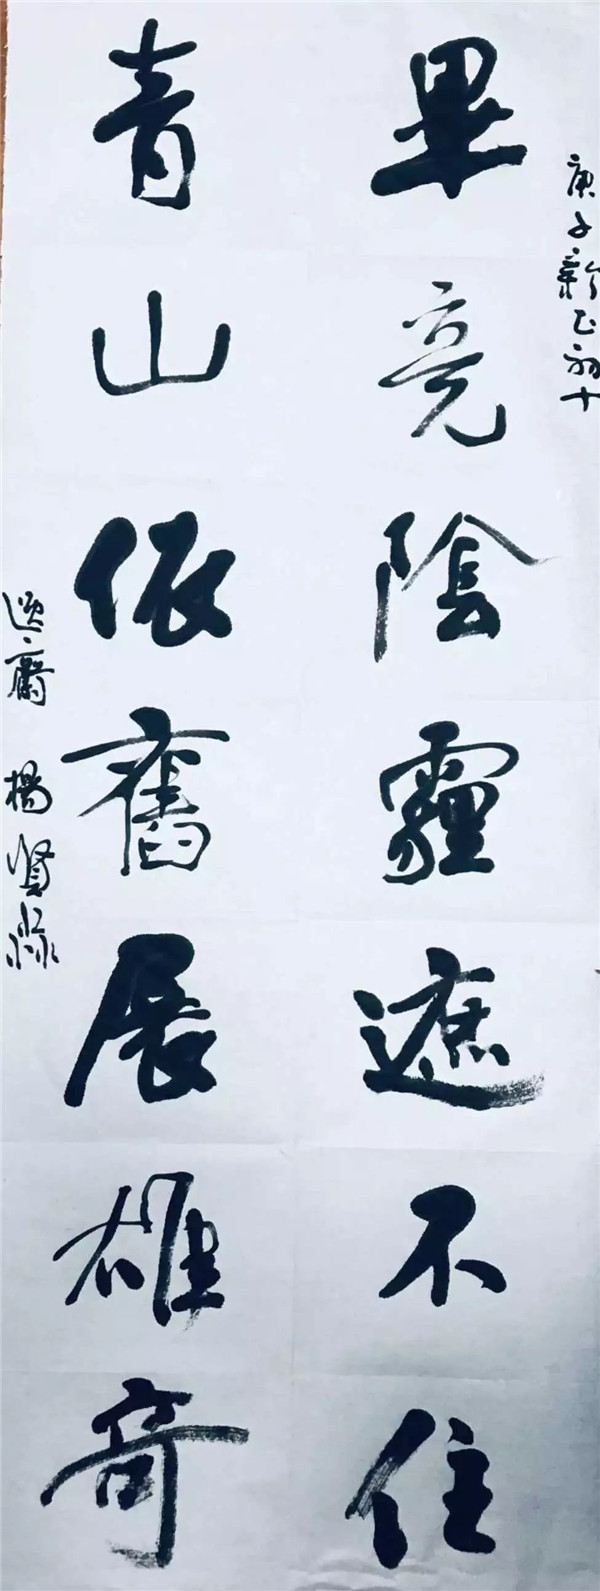 庚子新正初十
畢竟陰霾遮不住
青山依舊展雄奇
楊賢淼